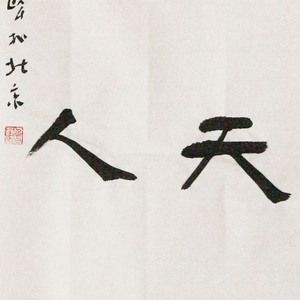 天人
於北京